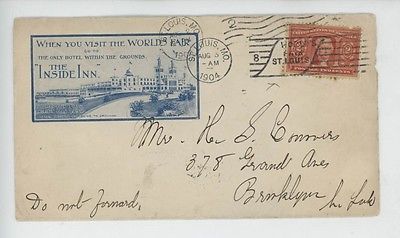 WHEN YOU VISIT THE WORLD'S FAIR
GO TO
THE ONLY HOTEL WITHIN THE GROUNDS.
"THE
INSIDE INN."
ST. LOUIS, MO.
ST. LOUIS, MO.
AUG 5
-AM
1904
8
WORLD'S
FAIR
ST. LOUIS
2 2
Mrs. H. S. Conners
378 Grand Ave
Brooklyn
Do not forward,